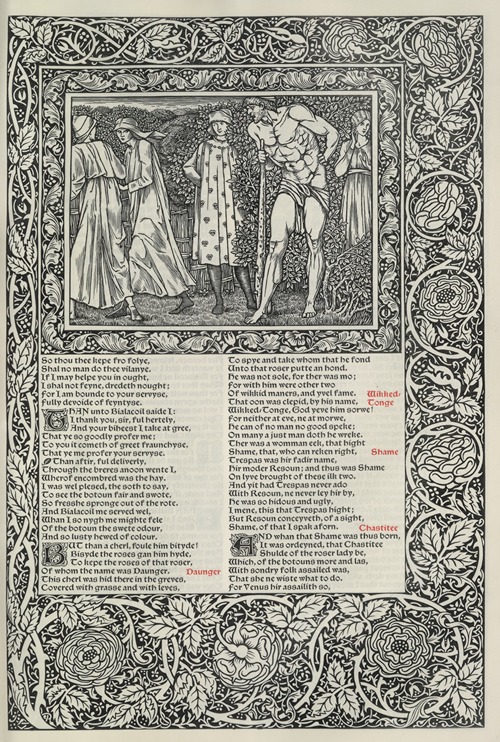 So thou thee kepe fro folye,
Shal no man do thee vilanye.
If I may helpe you in ought,
I shal not feyne, dredeth nought;
For I am bounde to your servyse,
Fully devoide of feyntyse.
THAN unto Bialacoil saide I:
I thank you, sir, ful hertely,
And your biheest I take at gree,
That ye so goodly profer me;
To you it cometh of greet fraunchyse,
That ye me profer your servyse.
Than aftir, ful deliverly,
Through the breres anoon wente I,
Wherof encombred was the hay.
I was wel plesed, the soth to say,
To see the botoun fair and swote,
So fresshe spronge out of the rote.
And Bialacoil me served wel,
Whan I so nygh me mighte fele
Of the botoun the swete odour,
And so lusty hewed of colour.
BUT than a cherl, foule him bityde!
Bisyde the roses gan him hyde,
To kepe the roses of that roser,
Of whom the name was Daunger.
Daunger
This cherl was hid there in the greves,
Covered with grasse and with leves,
To spye and take whom that he fond
Unto that roser putte an hond.
He was not sole, for ther was mo;
For with him were other two
Of wikkid maners, and yvel fame.
That oon was clepid, by his name,
Wikked-Tonge, God yeve him sorwe!
Wikked-
Tonge
For neither at eve, ne at morwe,
He can of no man no good speke;
On many a just man doth he wreke.
Ther was a womman eek, that hight
Shame, that, who can reken right,
Shame
Trespas was hir fadir name,
Hir moder Resoun; and thus was Shame
On lyve brought of these ilk two.
And yit had Trespas never ado
With Resoun, ne never ley hir by,
He was so hidous and ugly,
I mene, this that Trespas hight;
But Resoun conceyveth, of a sight,
Shame, of that I spak aforn.
Chastitee
AND whan that Shame was thus born,
It was ordeyned, that Chastitee
Shulde of the roser lady be,
Which, of the botouns more and las,
With sondry folk assailed was,
That she ne wiste what to do.
For Venus hir assailith so,